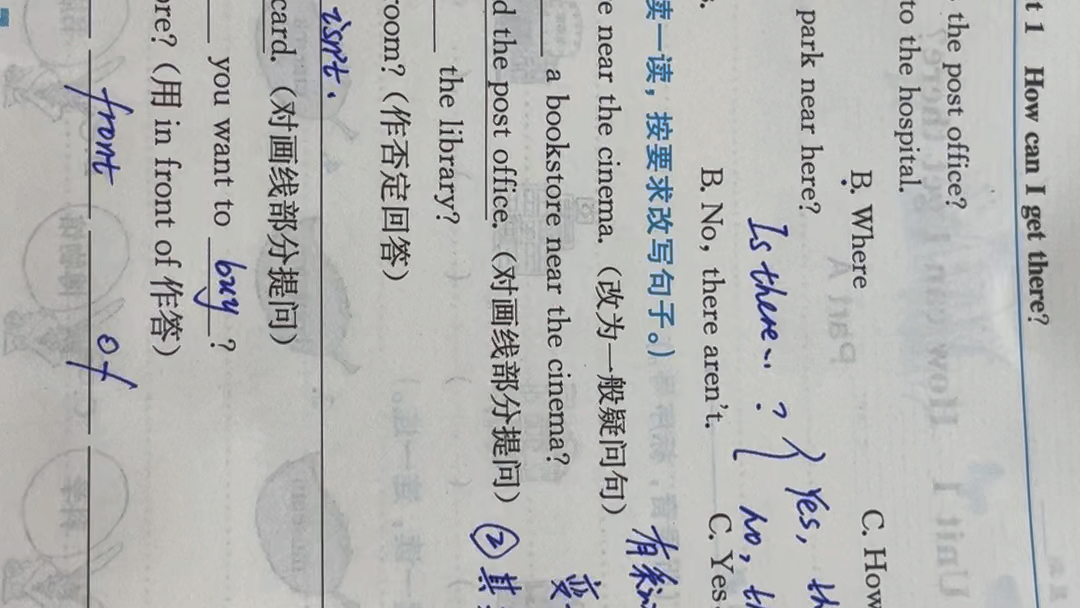 t 1 How can I get there?
the post office?
B. Where
C. How
to the hospital.
park near here?
Is there... ? Yes, th
No, th
B. No, there aren't.
C. Yes
读一读，按要求改写句子。）
e near the cinema.（改为一般疑问句）
a bookstore near the cinema?
d the post office.（对画线部分提问）
② 其
the library?
room?（作否定回答）
isn't.
card.（对画线部分提问）
you want to buy ?
ore?（用 in front of 作答）
front of